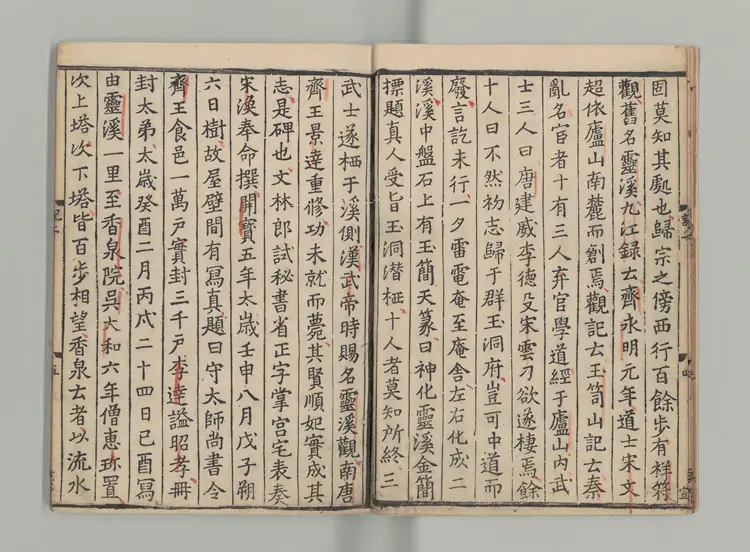 固莫知其處也歸宗之傍西行百餘步有祥符
觀舊名靈溪九江録云齊永明元年道士宋文
超依廬山南麓而創焉觀記云玉笥山記云秦
亂名宦者十有三人弃官學道經于廬山内武
士三人曰唐建威李德殳宋雲刁欲遂棲焉餘
十人曰不然初志歸于群玉洞府豈可中道而
廢言訖未行一夕雷電庵至庵舎左右化成二
溪溪中盤石上有玉簡天篆曰神化靈溪金簡
標題真人受旨玉洞潜栖十人者莫知所終三
武士遂栖于溪側漢武帝時賜名靈溪觀南唐
齊王景達重修功未就而薨其賢順妃實成其
志是碑也文林郎試秘書省正字掌宫宅表奏
宋渙奉命撰開寳五年太歳壬申八月戊子朔
六日樹故屋壁間有寫真題曰守太師尚書令
齊王食邑一萬戸實封三千戸李達謚昭孝冊
封太弟太歳癸酉二月丙戌二十四日己酉寫
由靈溪一里至香泉院吳大和六年僧惠珎置
次上塔次下塔皆百步相望香泉云者以流水